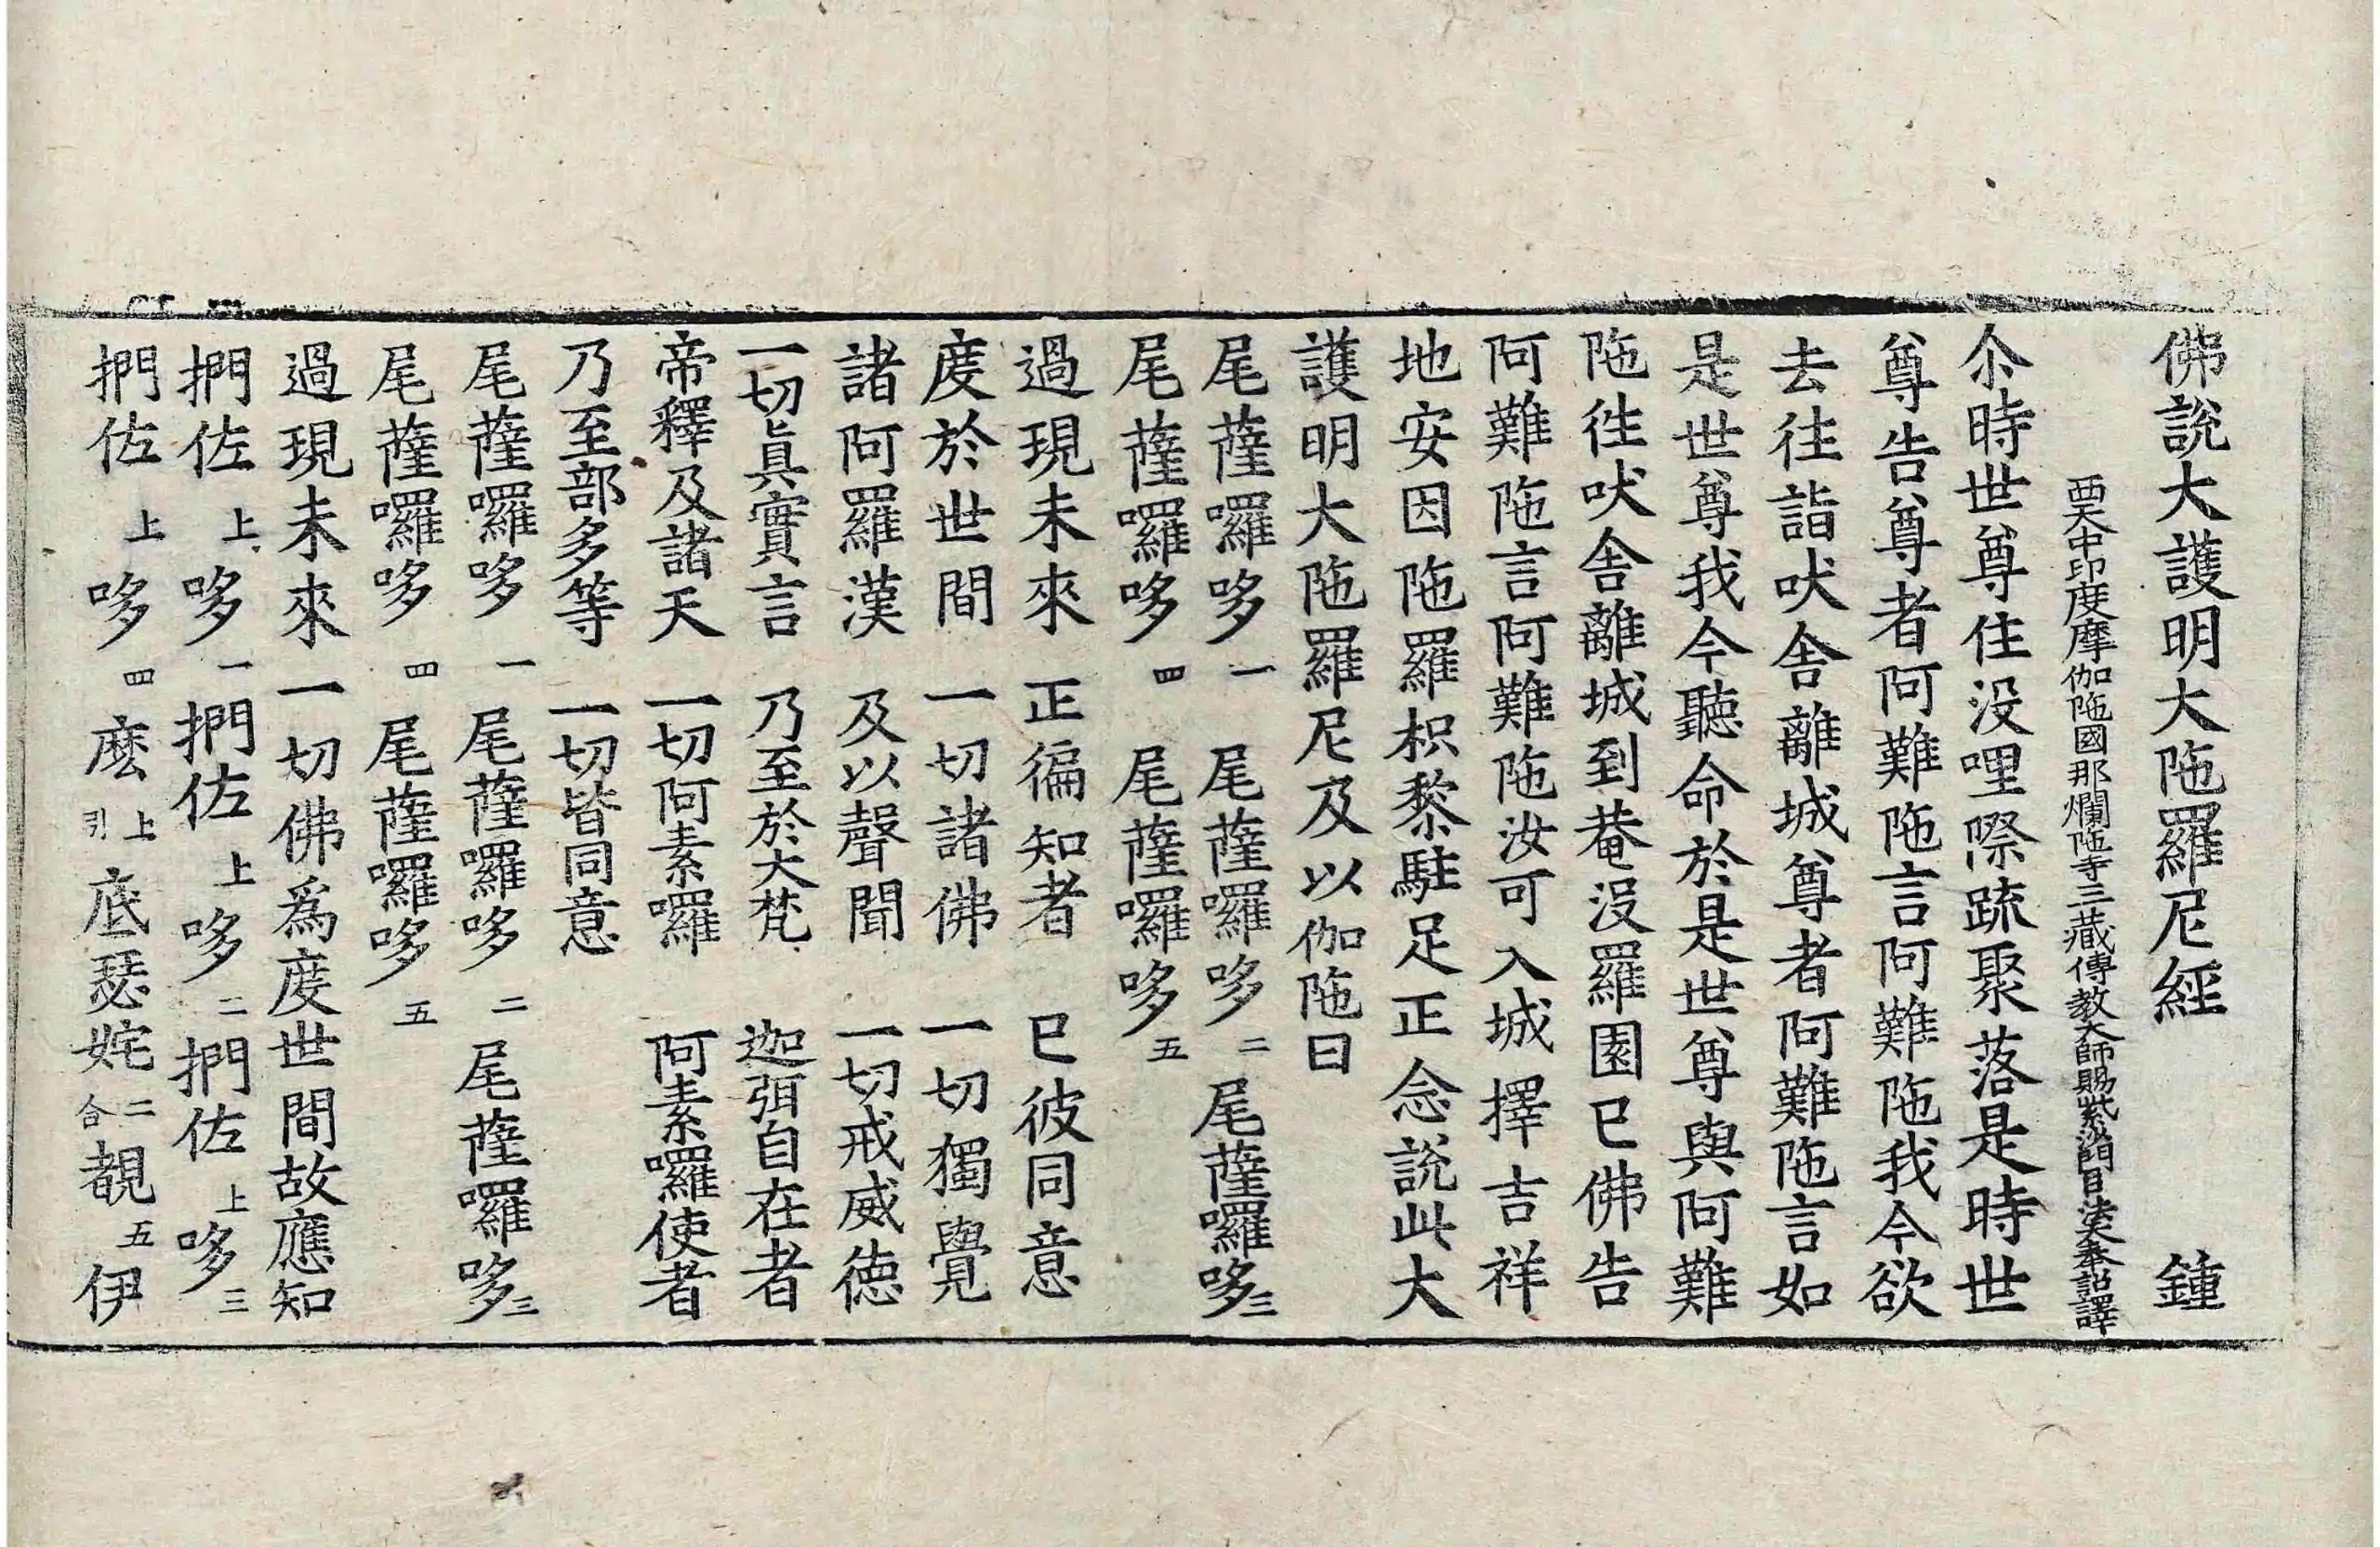 佛說大護明大陁羅尼經 鍾
西天中印度摩伽陁國那爛陁寺三藏傳教大師賜紫沙門臣法天奉 詔譯
尒時世尊住没哩際䟽聚落是時世
尊告尊者阿難陁言阿難陁我今欲
去往詣吠舍離城尊者阿難陁言如
是世尊我今聽命於是世尊與阿難
陁徃吠舍離城到菴没羅園已佛告
阿難陁言阿難陁汝可入城擇吉祥
地安因陁羅枳黎駐足正念說此大
護明大陁羅尼及以伽陁曰
尾薩囉哆一 尾薩囉哆二 尾薩囉哆三
尾薩囉哆四 尾薩囉哆五
過現未來 正徧知者 已彼同意
度於世間 一切諸佛 一切獨覺
諸阿羅漢 及以聲聞 一切戒威德
一切眞實言 乃至於大梵 迦弭自在者
帝釋及諸天 一切阿素囉 阿素囉使者
乃至部多等 一切皆同意
尾薩囉哆一 尾薩囉哆二 尾薩囉哆三
尾薩囉哆四 尾薩囉哆五
過現未來一切佛爲度世間故應知
捫佐上哆一捫佐上哆二捫佐上哆三
捫佐上哆四麽上引底瑟姹二合覩五伊